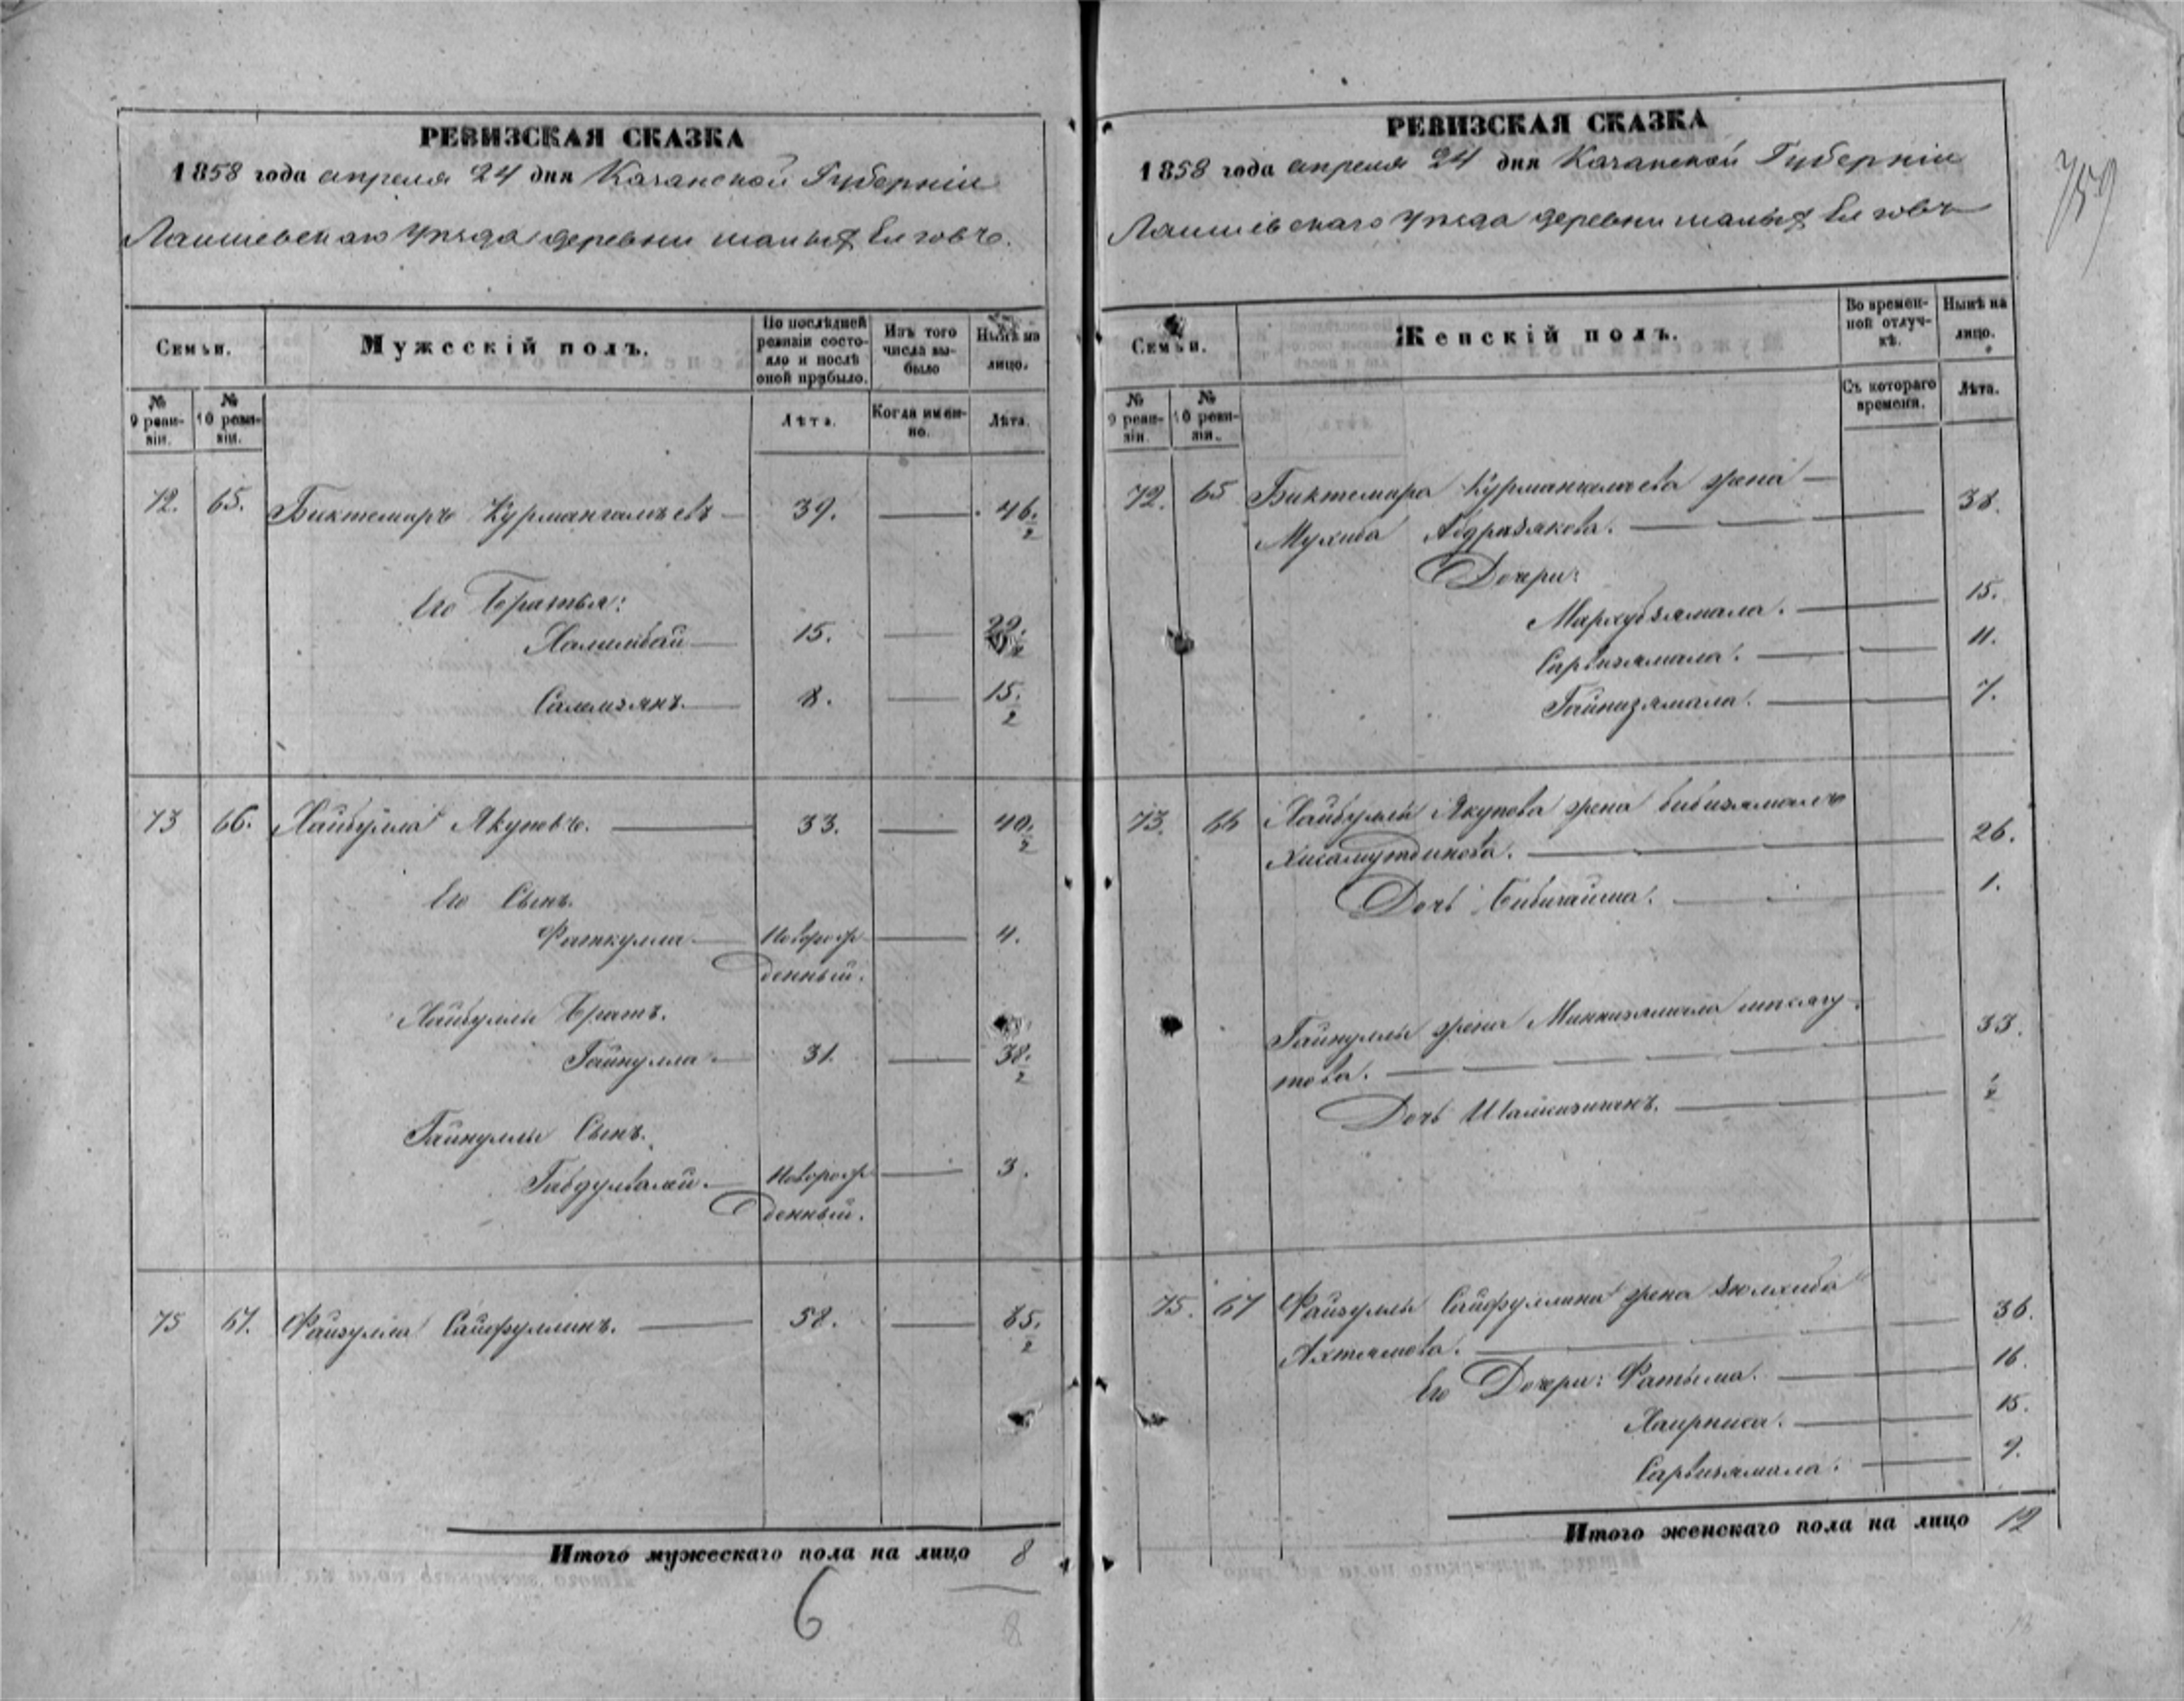 РЕВИЗСКАЯ СКАЗКА
1858 года апреля 24 дня Казанской Губерніи
Лаишевскаго Уѣзда деревни малыхъ Елговъ.
Семьи.
Мужескій полъ.
По послѣдней ревизіи состояло и послѣ оной прибыло.
Изъ того числа выбыло
Нынѣ на лицо.
№ 9 ревизіи.
№ 10 ревизіи.
Лѣта.
Когда именно.
Лѣта.
72. 65. Биктемиръ Курмангалѣевъ 39. 46. 1/2
Его Братья:
Халилбай 15. 22. 1/2
Салимзянъ 8. 15. 1/2
73 66. Хайбулла Якуповъ. 33. 40. 1/2
Его Сынъ.
Фаткулла Новорож 4.
денный.
Хайбуллы Братъ.
Гайнулла 31. 38. 1/2
Гайнуллы Сынъ.
Габдулвалей Новорож 3.
денный.
75 67. Файзулла Сайфуллинъ. 58. 65. 1/2
Итого мужескаго пола на лицо 8
6
8
РЕВИЗСКАЯ СКАЗКА
1858 года апреля 24 дня Казанской Губерніи
Лаишевскаго Уѣзда деревни малыхъ Елговъ
759
Семьи.
Женскій полъ.
Во временной отлучкѣ.
Нынѣ на лицо.
№ 9 ревизіи.
№ 10 ревизіи.
Съ котораго времени.
Лѣта.
72. 65 Биктемира Курмангалѣева жена
Мухиба Абдразякова. 38.
Дочери:
Мархубзямала. 15.
Сарвизямала. 11.
Гайнизямала. 7.
73. 66 Хайбуллы Якупова жена Бибизямалъ
Хисамутдинова. 26.
Дочь Бибигайша. 1.
Гайнуллы жена Миннизямала
това. 33.
Дочь 1/2
75. 67 Файзуллы Сайфуллина жена Зюлхиба
Ахтямова. 36.
Его Дочери: Фатыма. 16.
Хаирниса. 15.
Сарвизямала. 9.
Итого женскаго пола на лицо 12